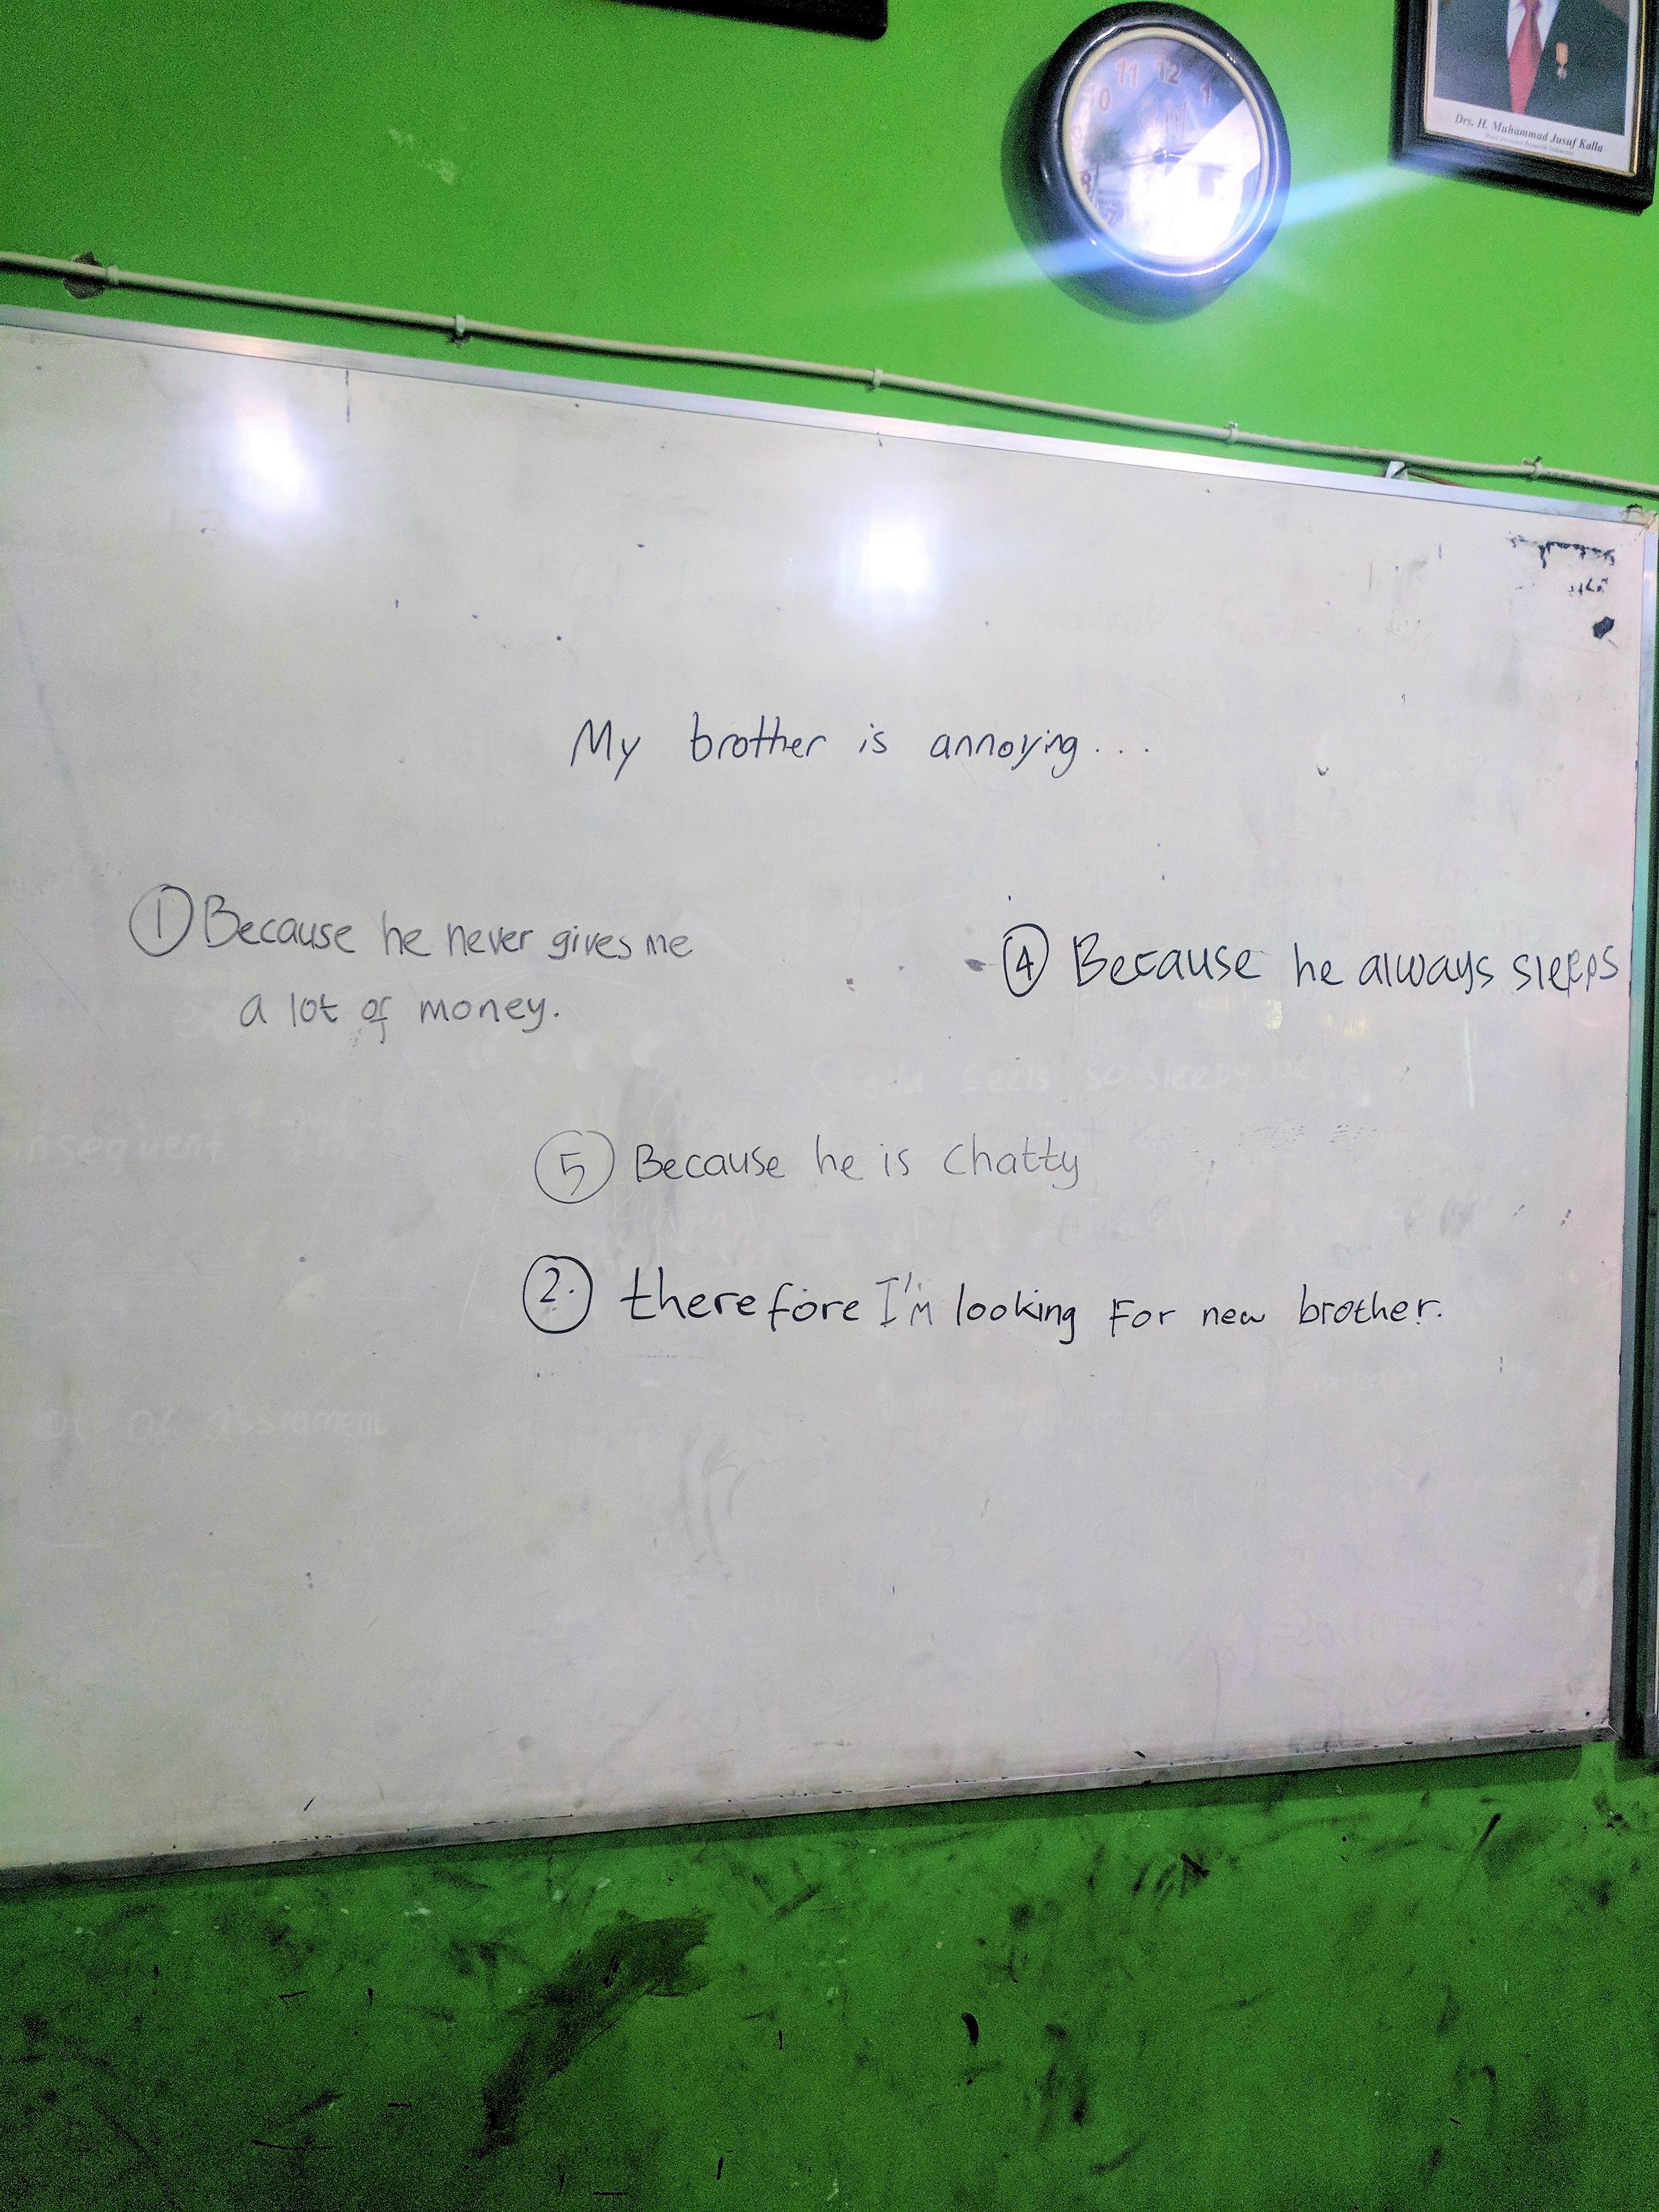 11 12 1
10
8
7
Drs. H. Muhammad Jusuf Kalla
My brother is annoying...
① Because he never gives me
a lot of money.
④ Because he always sleeps
feels so sleepy
nsequent
⑤ Because he is chatty
②. therefore I'm looking For new brother.
lot of assinment